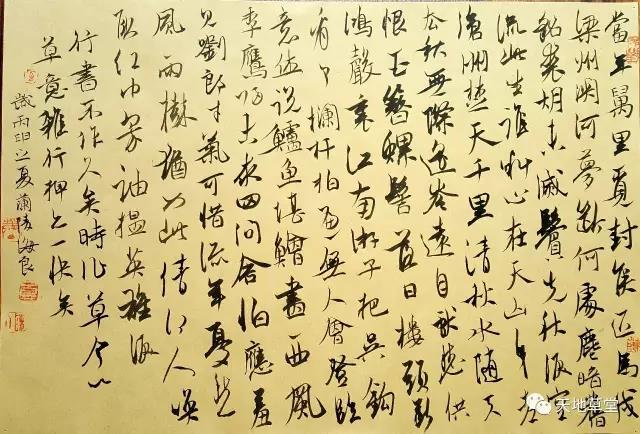 當年萬里覓封侯匹馬戍
梁州關河夢斷何處塵暗舊
貂裘胡未滅鬢先秋淚空
流此生誰料心在天山身老
滄洲楚天千里清秋水隨天
去秋無際遙岑遠目獻愁供
恨玉簪螺髻落日樓頭斷
鴻聲裏江南游子把吳鉤
看了攔杆拍遍無人會登臨
意休說鱸魚堪鱠盡西風
季鷹歸未求田問舍怕應羞
見劉郎才氣可惜流年憂愁
風雨樹猶如此倩何人喚
取紅巾翠袖揾英雄淚
行書不作久矣時作草今以
草意雜行押之一快矣
之夏蘭陵海良
天地草堂